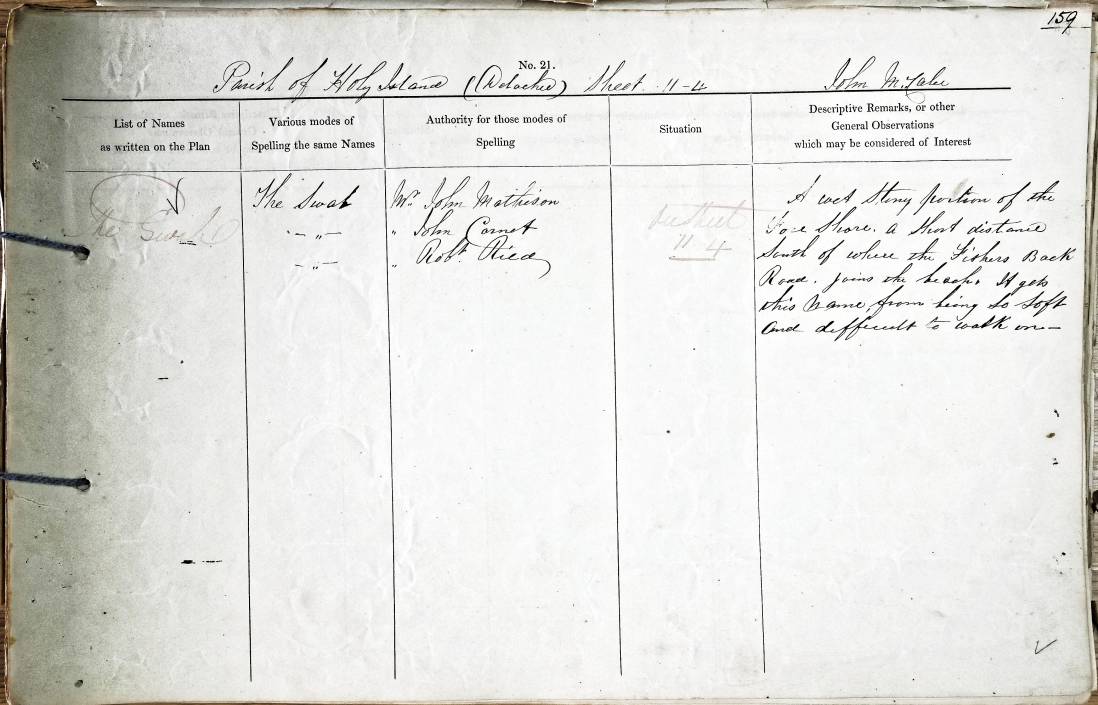 159
No. 21.
Parish of Holy Island (Detached) Sheet 11-4 John McCabe
List of Names
as written on the Plan
Various modes of
Spelling the same Names
Authority for those modes of
Spelling
Situation
Descriptive Remarks, or other
General Observations
which may be considered of Interest
The
The Swat
-"-
-"-
Mr. John Mathison
" John
" Robt.
See Sheet
11 4
A wet Stony portion of the
Fore Shore. a Short distance
South of where the Fishers Back
Road. joins the beach. It gets
this Name from being so Soft
and difficult to walk on—